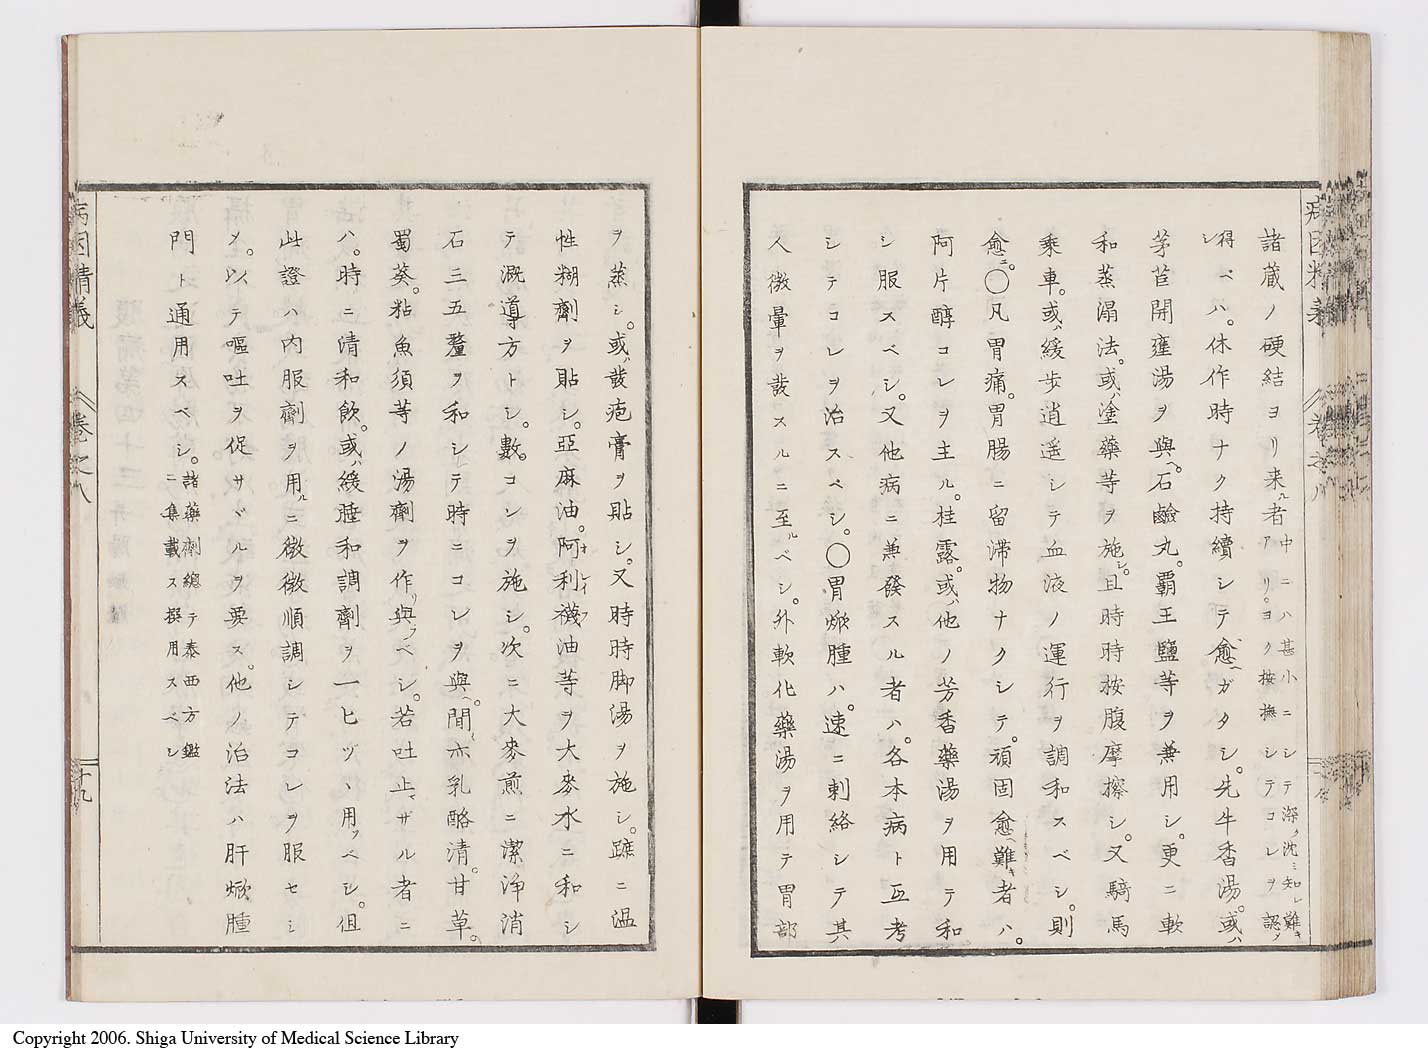 諸蔵ノ硬結ヨリ来ル者アリ。ヨク按撫シテコレヲ認ヲ
中ニハ甚小ニシテ深ク沈ミ知レ難キ
得ベハ。休作時ナク持續シテ愈ヘガタシ。先牛香湯。或ハ
茅苣開壅湯ヲ與ヘ。石鹸丸。覇王鹽等ヲ兼用シ。更ニ軟
和蒸溻法。或ハ塗藥等ヲ施シ。且時時按腹摩擦シ。又騎馬
乗車。或ハ緩歩逍遥シテ血液ノ運行ヲ調和スベシ。則
愈ニ。〇凡胃痛。胃腸ニ留滞物ナクシテ。頑固愈ヘ難キ者ハ。
阿片醇コレヲ主ル。桂露。或ハ他ノ芳香藥湯ヲ用テ和
シ服スベシ。又他病ニ兼發スル者ハ。各本病ト互考
シテコレヲ治スベシ。〇胃焮腫ハ。速ニ刺絡シテ其
人微暈ヲ發スルニ至ルベシ。外軟化藥湯ヲ用テ胃部
病因精義 巻之八 十九
ヲ蒸シ。或ハ發疱膏ヲ貼シ。又時時脚湯ヲ施シ。蹠ニ温
性糊劑ヲ貼シ。亞麻油。阿利襪油等ヲ大麥水ニ和シ
テ漑導方トシ。數コレヲ施シ。次ニ大麥煎ニ潔浄消
石三五釐ヲ和シテ時ニコレヲ與ヘ。間亦乳酪清。甘草。
蜀葵。粘魚須等ノ湯劑ヲ作リ與フベシ。若吐止マザル者ニ
ハ。時ニ清和飲。或ハ緩腫和調劑ヲ一ヒヅヽ用フベシ。但
此證ハ内服劑ヲ用ルニ微微順調シテコレヲ服セシ
メ。以テ嘔吐ヲ促サザルヲ要ス。他ノ治法ハ肝焮腫
門ト通用スベシ。諸藥劑總テ泰西方鑑
ニ集載ス撰用スベシ